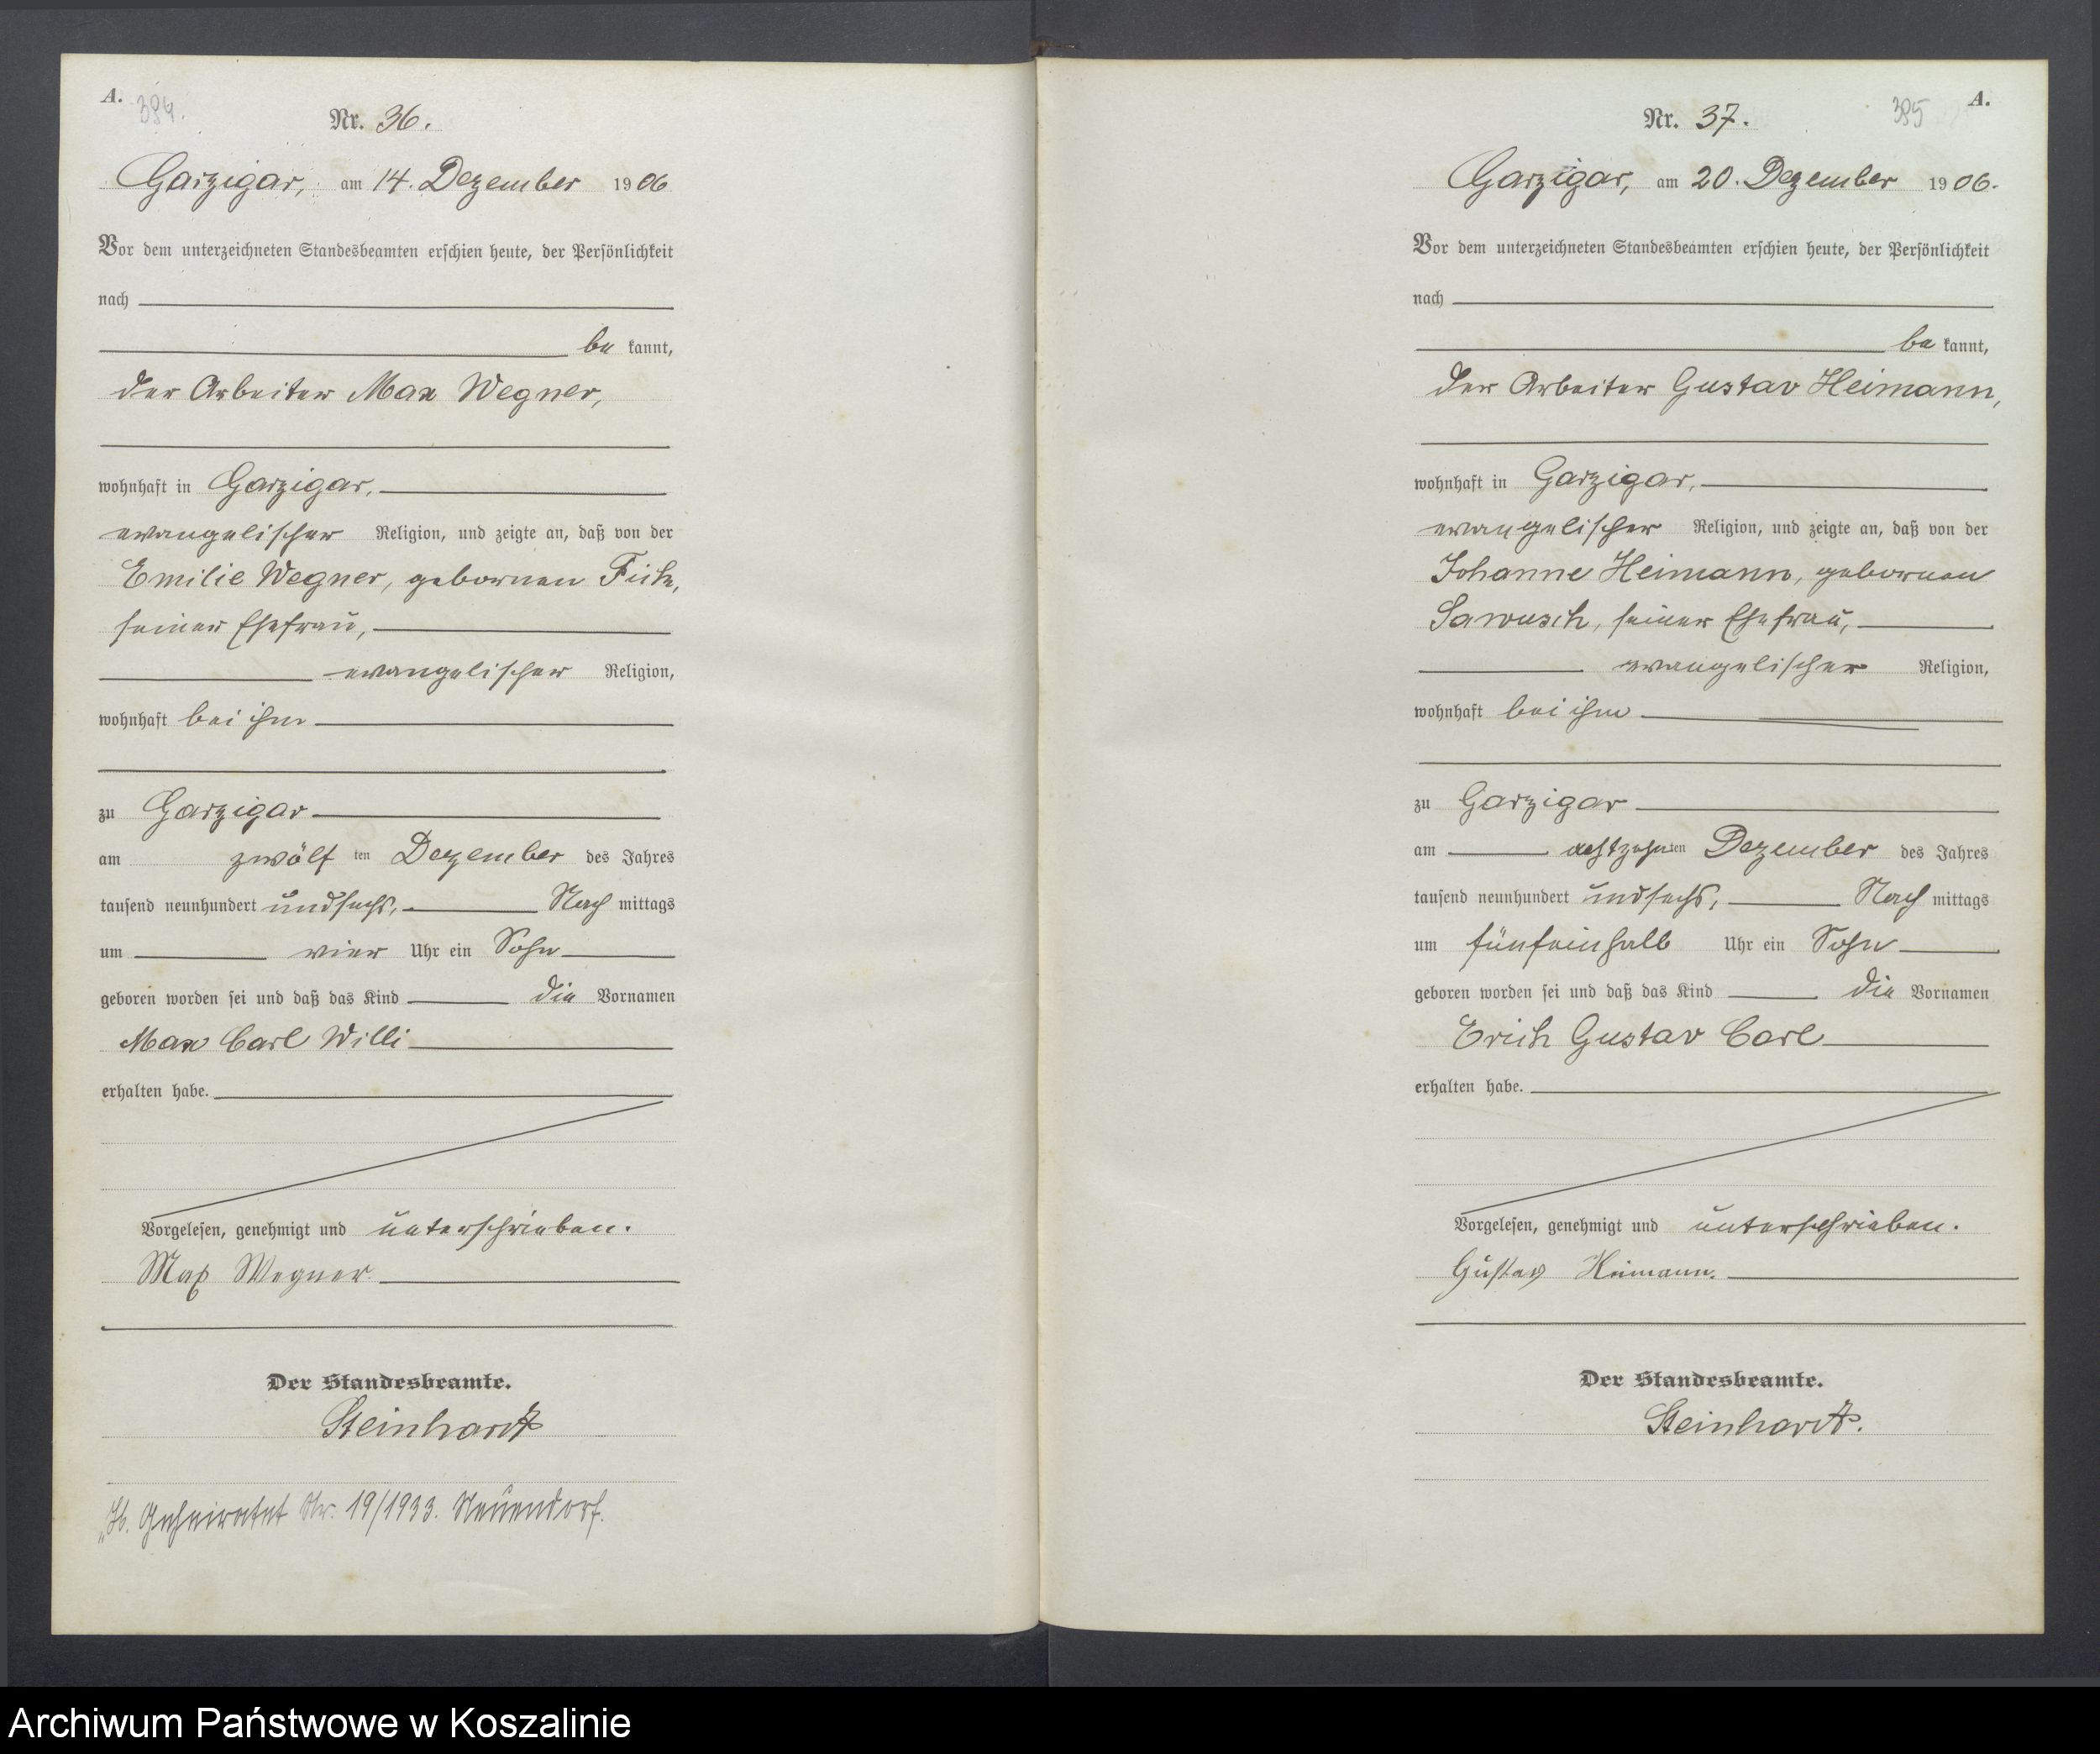 A.
384.
Nr. 36.
Garzigar, am 14. Dezember 1906
Vor dem unterzeichneten Standesbeamten erschien heute, der Persönlichkeit
nach
be kannt,
der Arbeiter Max Wegner,
wohnhaft in Garzigar,
evangelischer Religion, und zeigte an, daß von der
Emilie Wegner, gebornen
seiner Ehefrau,
evangelischer Religion,
wohnhaft bei ihm
zu Garzigar
am zwölf ten Dezember des Jahres
tausend neunhundert und sechs, Nach mittags
um vier Uhr ein Sohn
geboren worden sei und daß das Kind die Vornamen
Max Carl Willi
erhalten habe.
Vorgelesen, genehmigt und unterschrieben.
Max Wegner.
Der Standesbeamte.
Steinhardt
Geheiratet Nr. 19/1933. Neuendorf.
A.
385
Nr. 37.
Garzigar, am 20. Dezember 1906.
Vor dem unterzeichneten Standesbeamten erschien heute, der Persönlichkeit
nach
be kannt,
der Arbeiter Gustav Heimann,
wohnhaft in Garzigar,
evangelischer Religion, und zeigte an, daß von der
Johanne Heimann, gebornen
Sawusch, seiner Ehefrau,
evangelischer Religion,
wohnhaft bei ihm
zu Garzigar
am achtzehnten Dezember des Jahres
tausend neunhundert und sechs, Nach mittags
um fünfeinhalb Uhr ein Sohn
geboren worden sei und daß das Kind die Vornamen
Erich Gustav Carl
erhalten habe.
Vorgelesen, genehmigt und unterschrieben.
Gustav Heimann.
Der Standesbeamte.
Steinhardt.
Archiwum Państwowe w Koszalinie